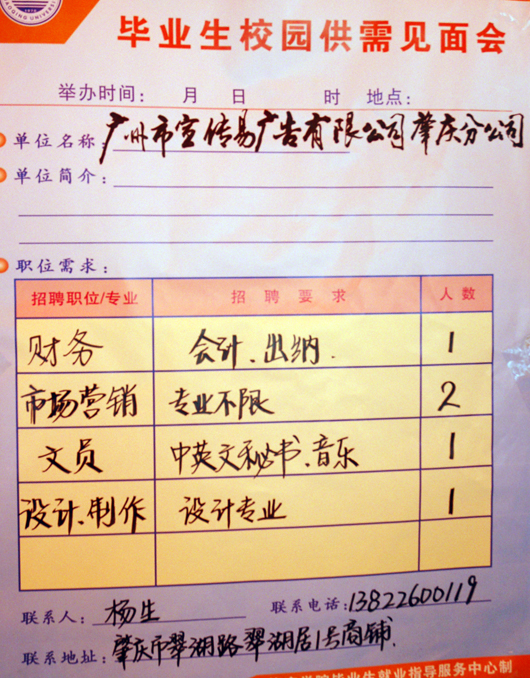 毕业生校园供需见面会
举办时间: 月 日 时 地点:
单位名称: 广州市宣传易广告有限公司肇庆分公司
单位简介:
职位需求:
招聘职位/专业 招聘要求 人数
财务 会计、出纳. 1
市场营销 专业不限 2
文员 中英文秘书、音乐 1
设计、制作 设计专业 1
联系人: 杨生 联系电话: 13822600119
联系地址: 肇庆市翠湖路翠湖居1号商铺.
学院毕业生就业指导服务中心制